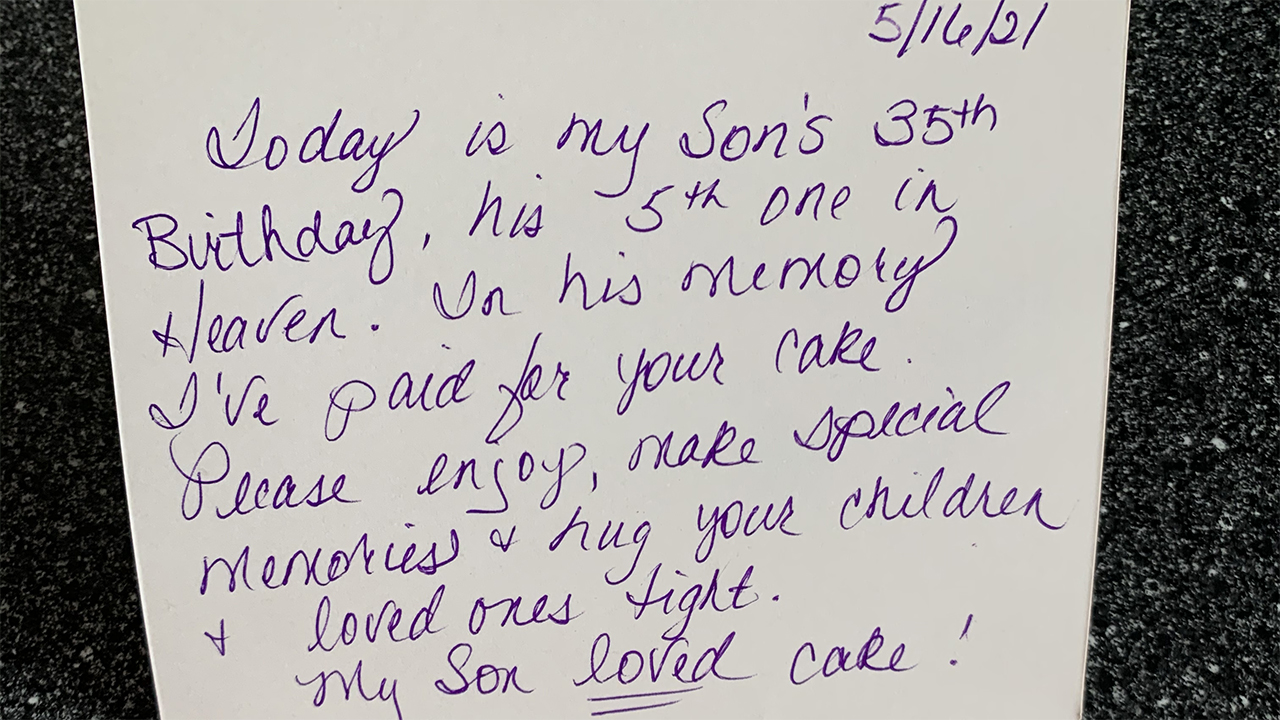 5/16/21
Today is my Son's 35th
Birthday, his 5th one in
Heaven. In his memory
I've paid for your cake.
Please enjoy, make special
memories & hug your children
& loved ones tight.
My Son loved cake!